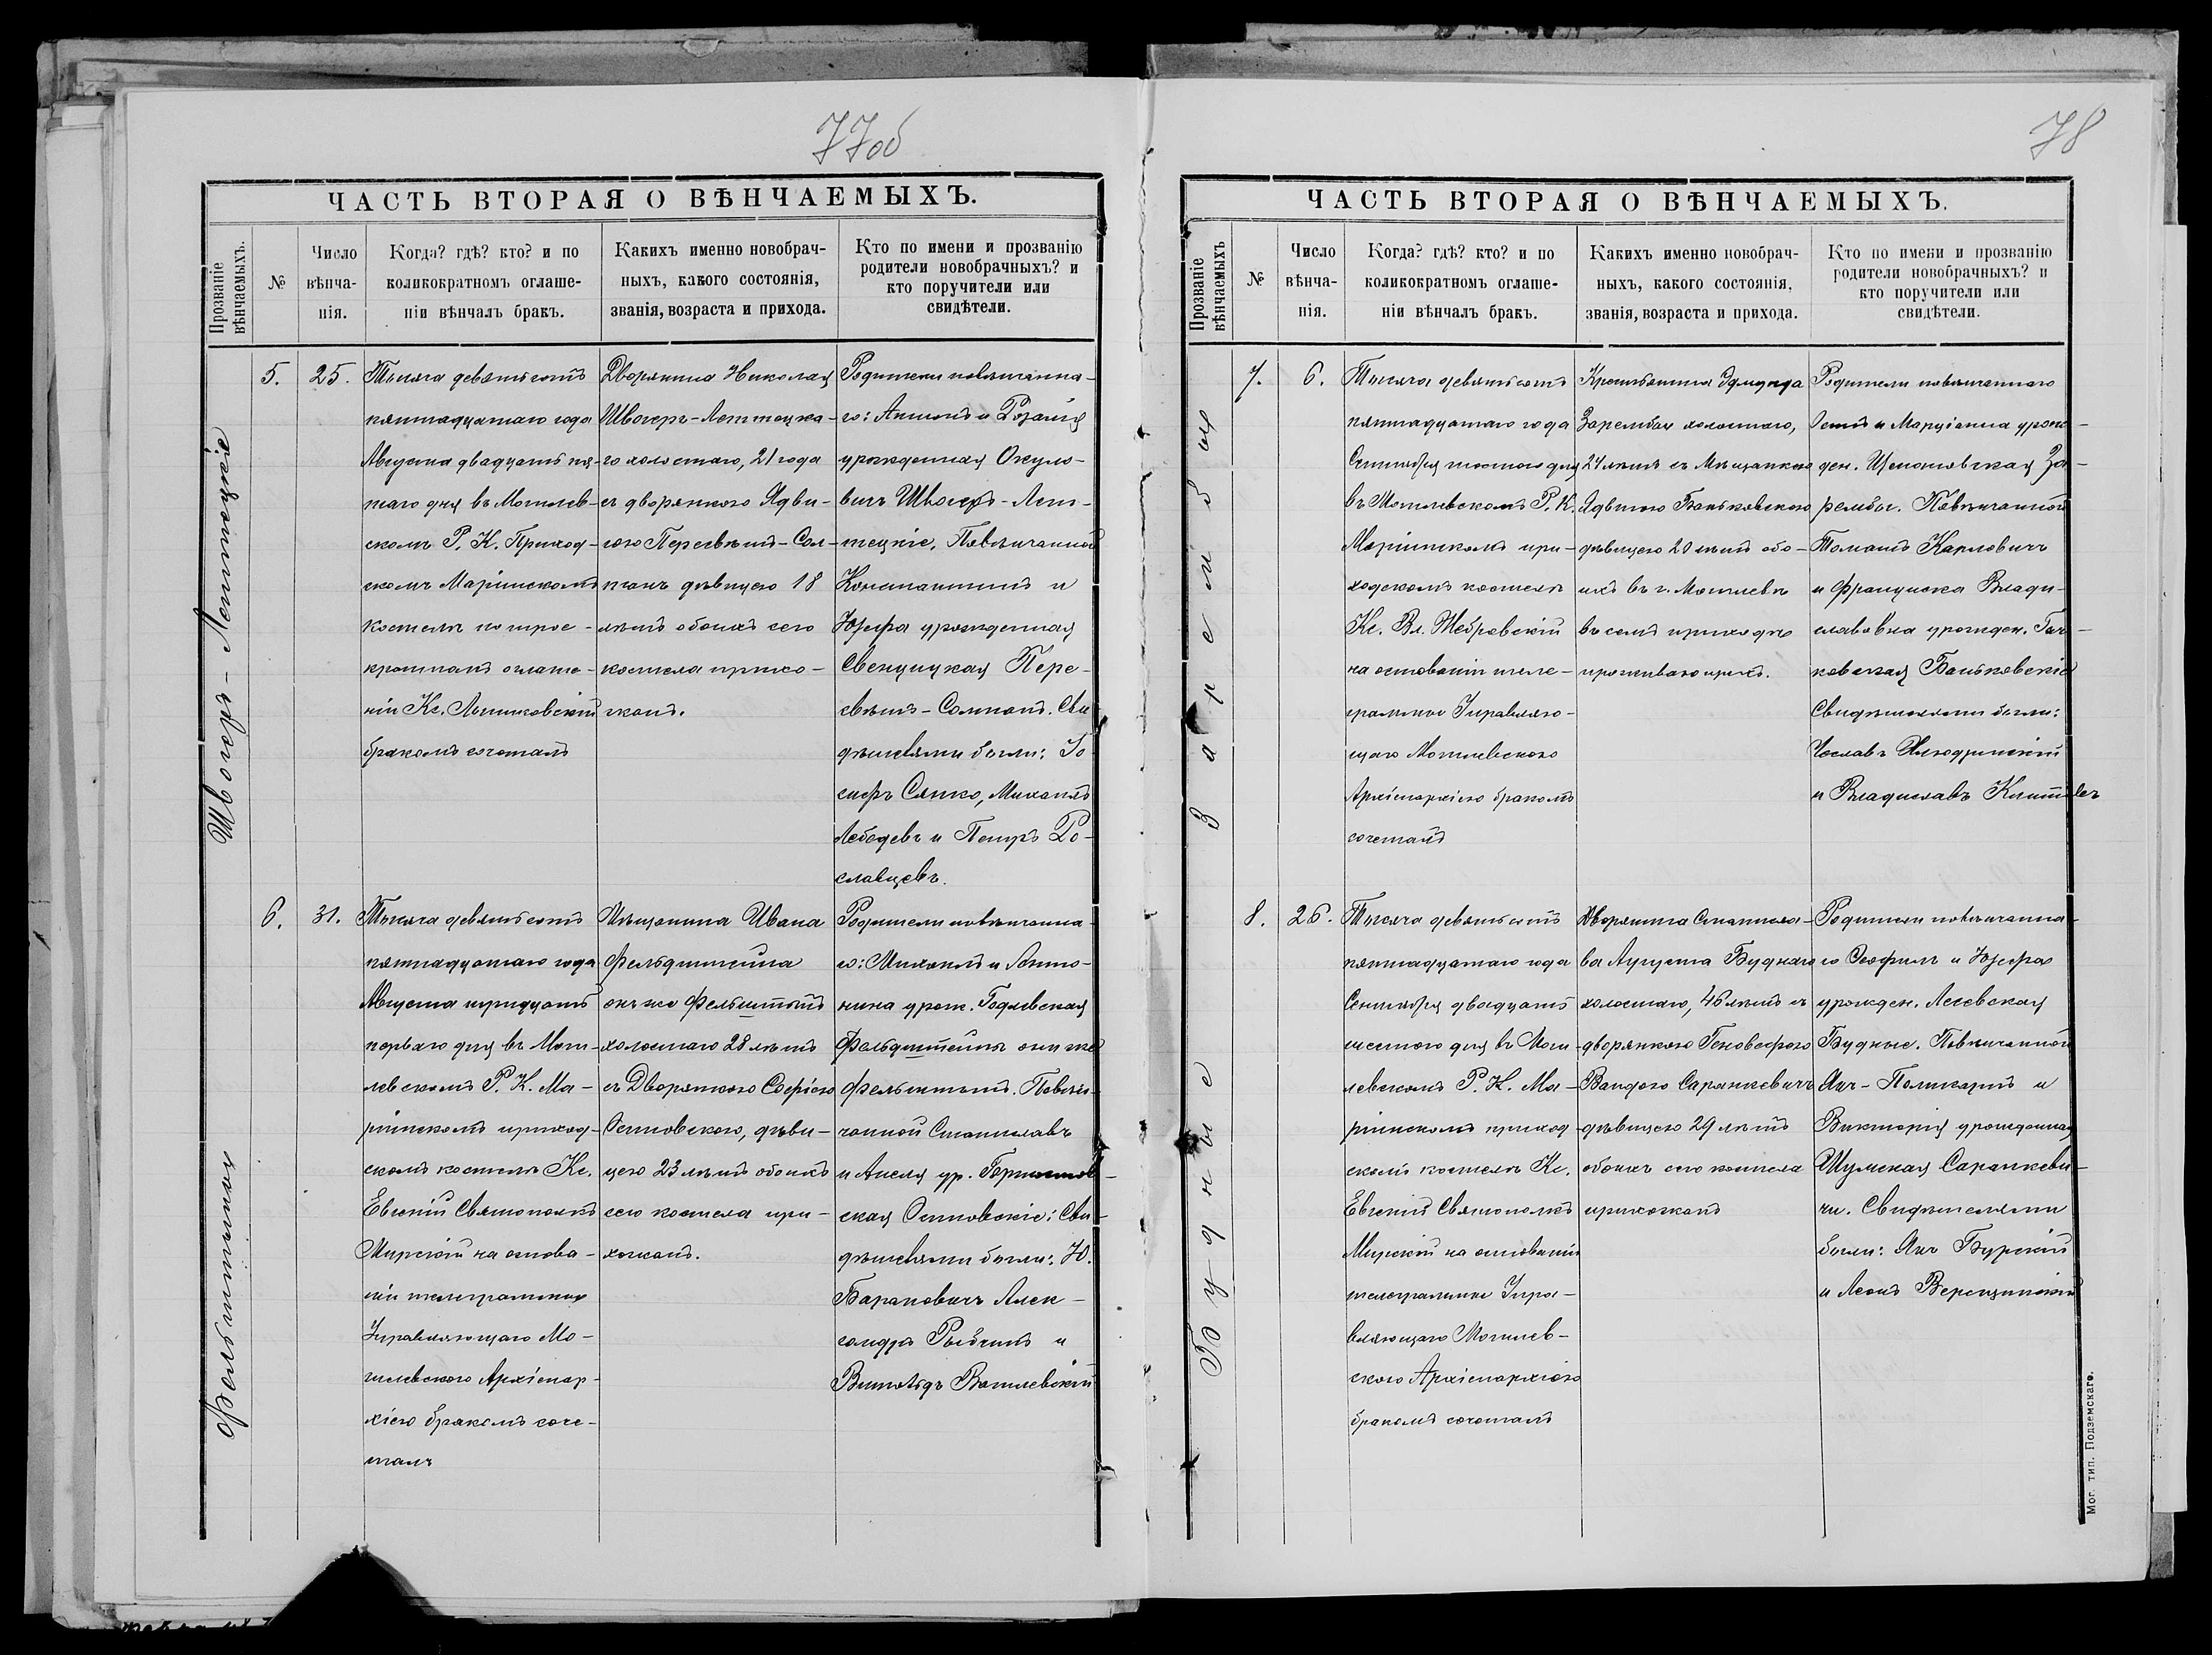 77об
ЧАСТЬ ВТОРАЯ О ВѢНЧАЕМЫХЪ.
Прозваніе
вѣнчаемыхъ.
№
Число
вѣнча-
нія.
Когда? гдѣ? кто? и по
коликократномъ оглаше-
ніи вѣнчалъ бракъ.
Какихъ именно новобрач-
ныхъ, какого состоянія,
званія, возраста и прихода.
Кто по имени и прозванію
родители новобрачныхъ? и
кто поручители или
свидѣтели.
5.
25.
Тысяча девятьсотъ
пятнадцатаго года
Августа двадцать пя-
таго дня въ Могилев-
скомъ Р. К. Приход-
скомъ Маріинскомъ
костелѣ по трое-
кратномъ оглаше-
ніи Кс.
бракомъ сочеталъ
Дворянина Николая
Швогеръ-Леттецка-
го холостаго, 21 года
съ дворянкою Ядви-
гою Пересвѣтъ-Сол-
танъ дѣвицею 18
лѣтъ обоихъ сего
костела прихо-
жанъ.
Родители повѣнчанна-
го: Антонъ и Розалія
урожденная Окуло-
вичъ Швогеръ-Лет-
тецкіе. Повѣнчанной
Константинъ и
Юзефа урожденная
Свенцицкая Пере-
свѣтъ-Солтанъ. Сви
дѣтелями были: Іо
сифъ Сянко, Михаилъ
Лебедевъ и Петръ Ро-
славцевъ.
6.
31.
Тысяча девятьсотъ
пятнадцатаго года
Августа тридцать
перваго дня въ Моги-
левскомъ Р. К. Ма-
ріинскомъ приход-
скомъ костелѣ Кс.
Евгеній Святополкъ
Мирскій на основа-
ніи телеграммы
Управляющаго Мо-
гилевскою Архіепар-
хіею бракомъ соче-
талъ
Мѣщанина Ивана
Фельдштейна
онъ же Фельштынъ
холостаго 28 лѣтъ
съ Дворянкою Софіею
Осиповскою, дѣви-
цею 23 лѣтъ обоихъ
сего костела при-
хожанъ.
Родители повѣнчанна-
го: Михаилъ и Анто-
нина урож. Годлевская
Фельдштейнъ они же
Фельштынъ. Повѣн-
чанной Станиславъ
и Анеля ур.
ская Осиповскіе: Сви-
дѣтелями были: Ю.
Барановичъ Алек-
сандръ и
Витольдъ Василевскій
Швогеръ-Леттецкаго
Фельдштейнъ
78
ЧАСТЬ ВТОРАЯ О ВѢНЧАЕМЫХЪ.
Прозваніе
вѣнчаемыхъ
№
Число
вѣнча-
нія.
Когда? гдѣ? кто? и по
коликократномъ оглаше-
ніи вѣнчалъ бракъ.
Какихъ именно новобрач-
ныхъ, какого состоянія,
званія, возраста и прихода.
Кто по имени и прозванію
родители новобрачныхъ? и
кто поручители или
свидѣтели.
7.
6.
Тысяча девятьсотъ
пятнадцатаго года
Сентября шестого дня
въ Могилевскомъ Р. К.
Маріинскомъ при-
ходскомъ костелѣ
Кс. Вл. Жебровскій
на основаніи теле-
граммы Управляю-
щаго Могилевскою
Архіепархіею бракомъ
сочеталъ
Крестьянина Эдмунда
Зарембы холостаго,
24 лѣтъ съ Мѣщанкою
Ядвигою Баньковскою
дѣвицею 20 лѣтъ обо-
ихъ въ г. Могилевѣ
въ семъ приходѣ
проживающихъ.
Родители повѣнчаннаго
Осипъ и Марціанна урож-
ден. За-
рембы. Повѣнчанной
Томашъ Карловичъ
и Франциска Влади-
славовна урожден.
ковская Баньковскіе
Свидѣтелями были:
Чеславъ
и Владиславъ
8.
26.
Тысяча девятьсотъ
пятнадцатаго года
Сентября двадцать
шестого дня въ Моги-
левскомъ Р. К. Ма-
ріинскомъ приход-
скомъ костелѣ Кс.
Евгеній Святополкъ
Мирскій на основаніи
телеграммы Упра-
вляющаго Могилев-
скою Архіепархіею
бракомъ сочеталъ
Дворянина Станисла-
ва Августа Буднаго
холостаго, 46 лѣтъ съ
дворянкою Геновефою
Вандою Саранкевичъ
дѣвицею 29 лѣтъ
обоихъ сего костела
прихожанъ
Родители повѣнчанна-
го Теофилъ и Юзефа
урожден. Лесевская
Будные. Повѣнчанной
Янъ-Поликарпъ и
Викторія урожденная
Шумская Саранкеви-
чи. Свидѣтелями
были: Янъ Бурскій
и Леонъ Верещинскій
Зарембы
Будные
Мог. тип. Подземскаго.